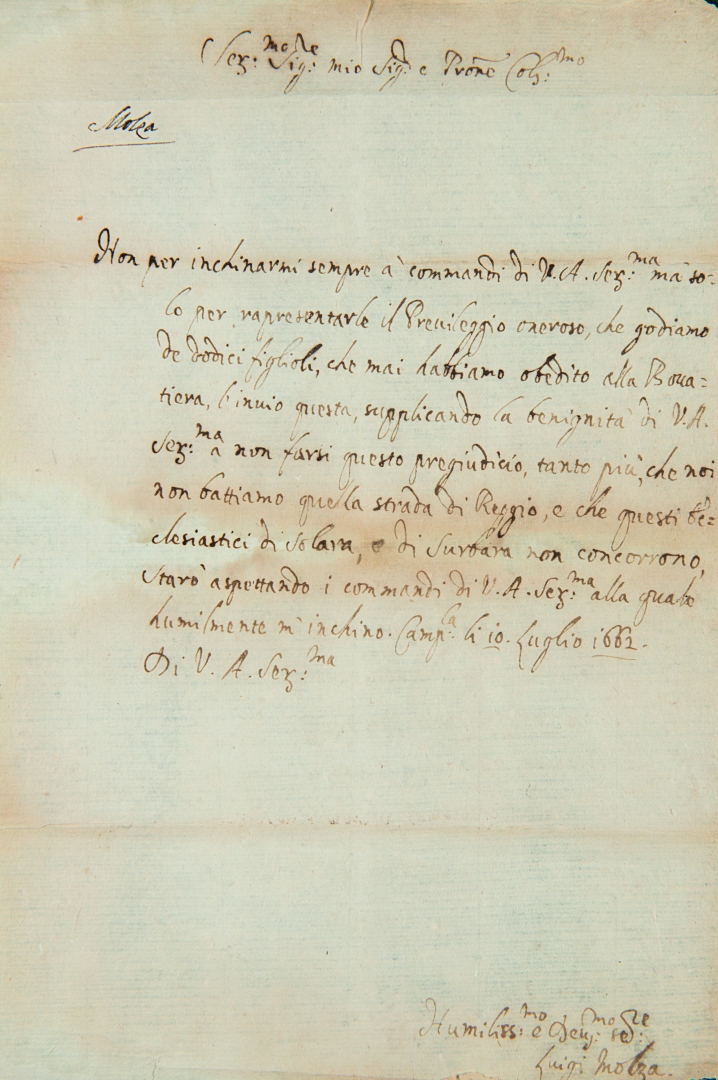 Ser:mo Sig:re mio Sig.r e Prone Col:mo
Molza
Non per inchinarmi sempre à commandi di V. A. Ser:ma mà so=
lo per rapresentarle il Previleggio oneroso, che godiamo
de dodici figlioli, che mai habbiamo obedito alla Boua=
tiera, l'inuio questa, supplicando la benignità di V. A.
Ser:ma à non farsi questo pregiudicio, tanto più, che noi
non battiamo quella strada di Reggio, e che questi Ec=
clesiastici di Solara, e di Surbara non concorrono,
Starò aspettando i commandi di V. A. Ser:ma alla quale
humilmente m'inchino. Camp:la li 10. Luglio 1662.
Di V. A. Ser:ma
Humiliss:mo e Deu:mo se:re
Luigi Molza.